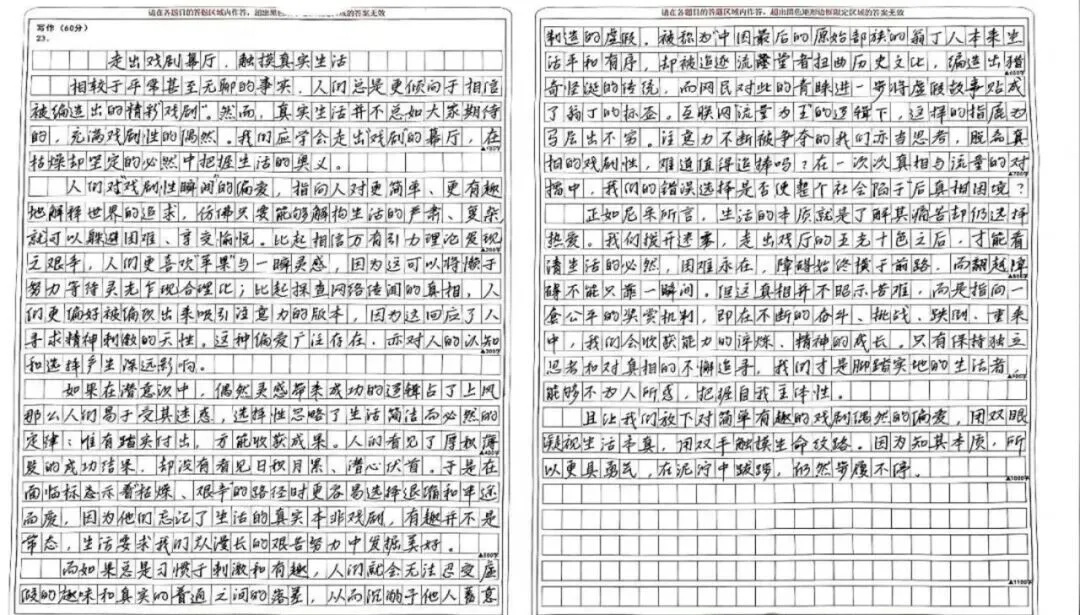 请在各题目的答题区域内作答,超出黑
写作(60分)
23.
走出戏剧幕厅,触摸真实生活
相较于平常甚至无聊的事实,人们总是更倾向于相信
被编造出的精彩"戏剧"。然而,真实生活并不总如大家期待
的,充满戏剧性的偶然。我们应学会走出戏剧的幕厅,在
枯燥却坚定的必然中把握生活的奥义。
人们对"戏剧性瞬间"的偏爱,指向人对更简单、更有趣
地解释世界的追求,仿佛只要能够解构生活的严肃、复杂
就可以躲避困难、享受愉悦。比起相信万有引力理论发现
▲200字
之艰辛,人们更喜欢"苹果"与一瞬灵感,因为这可以将懒于
努力等待灵光乍现合理化;比起探查网络传闻的真相,人
们更偏好被偏改出来吸引注意力的版本,因为这回应了人
寻求精神刺激的天性。这种偏爱广泛存在,亦对人的认知
▲300字
和选择产生深远影响。
如果在潜意识中,偶然灵感带来成功的逻辑占了上风
那么人们易于受其迷惑,选择性忽略了生活简洁而必然的
定律:唯有踏实付出,方能收获成果。人们看见了厚积薄
▲400字
发的成功结果,却没有看见日积月累、潜心伏首。于是在
面临标志示着"枯燥、艰辛"的路径时更容易选择退缩和半途
而废,因为他们忘记了生活的真实本非戏剧,有趣并不是
常态,生活要求我们从漫长的艰苦努力中发掘美好。
▲500字
而如果总是习惯于刺激和有趣,人们就会无法忍受虚
假的趣味和真实的普通之间的落差,从而沉溺于他人蓄意
请在各题目的答题区域内作答,超出黑色矩形边框限定区域的答案无效
制造的虚假。被称为"中国最后的原始部族"的翁丁人本来生
活平和有序,却被追逐流量者扭曲历史文化,编造出猎
▲600字
奇怪诞的传统,而网民对此的青睐进一步将虚假故事贴成
了翁丁的标签。互联网"流量为王"的逻辑下,这样的指鹿为
马层出不穷。注意力不断被争夺的我们亦当思考,脱离真
相的戏剧性,难道值得追捧吗?在一次次真相与流量的对
▲700字
擂中,我们的错误选择是否使整个社会陷于"后真相困境"?
正如尼采所言,生活的本质就是了解其痛苦却仍选择
热爱。我们拨开迷雾,走出戏厅的五光十色之后,才能看
清生活的必然,困难永在,障碍始终横于前路,而翻越障
碍不能只靠一瞬间。但这真相并不昭示苦难,而是指向一
套公平的奖赏机制,即在不断的奋斗、挑战、跌倒、重来
中,我们会收获能力的淬炼、精神的成长。只有保持独立
思考和对真相的不懈追寻,我们才是脚踏实地的生活者,
能够不为人所惑,把握自我主体性。
且让我们放下对简单有趣的戏剧偶然的偏爱,用双眼
凝视生活本真,用双手触摸生命纹路。因为知其本质,所
以更具勇气,在泥泞中跋涉,仍然步履不停。
▲1000字
▲1100字